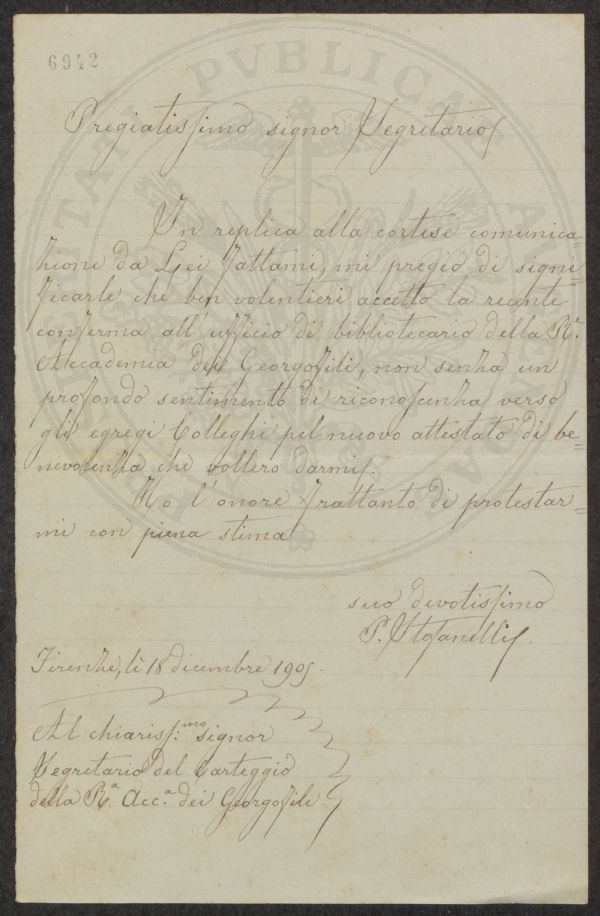 6942
Pregiatissimo signor Segretario,
In replica alla cortese comunica=
zione da Lei fattami, mi pregio di signi=
ficarle che ben volentieri accetto la recente
conferma all'ufficio di bibliotecario della R.ª
Accademia dei Georgofili, non senza un
profondo sentimento di riconoscenza verso
gli egregi Colleghi pel nuovo attestato di be=
nevolenza che vollero darmi.
Ho l'onore frattanto di protestar=
mi con piena stima
suo devotissimo
P. Stefanelli.
Firenze, lì 18 dicembre 1905.
Al chiariss.mo signor
Segretario del Carteggio
della R.ª Acc.ª dei Georgofili
PUBLICAE